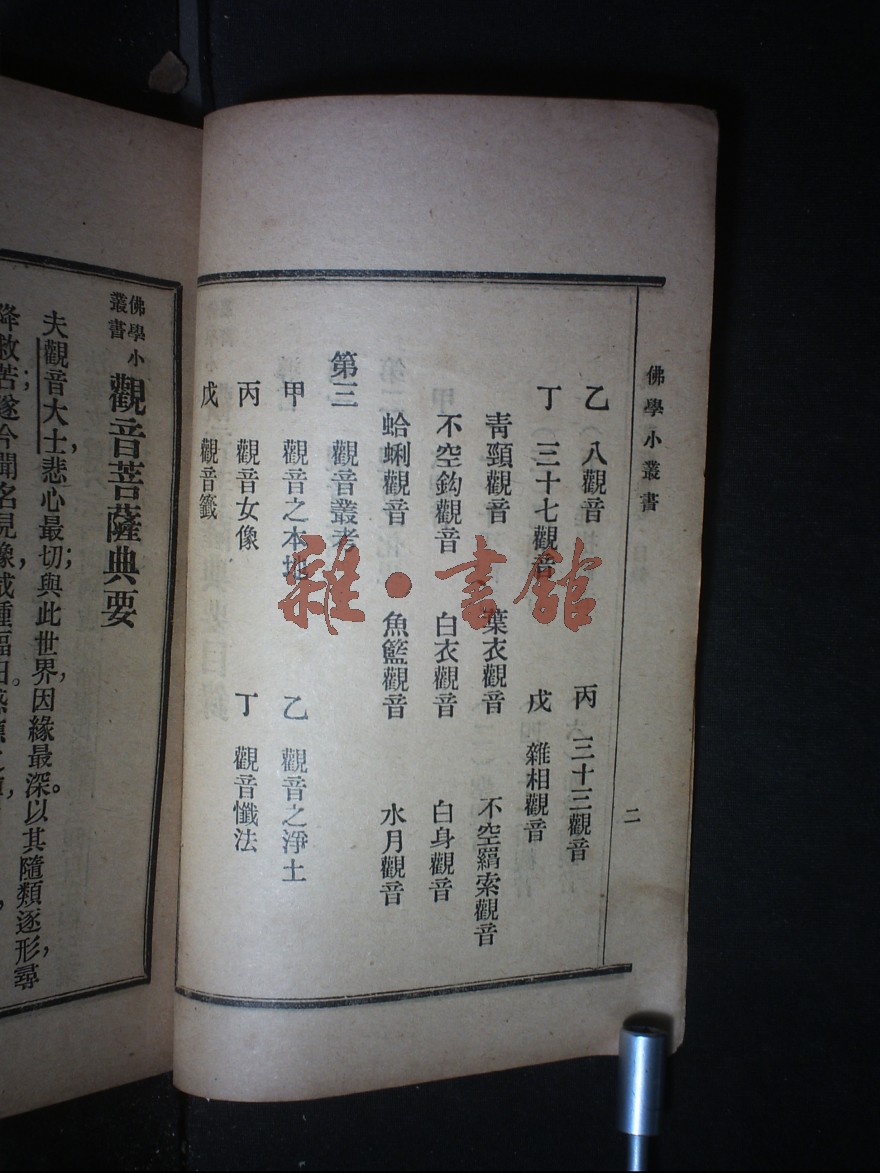 佛學小叢書
二
乙 八觀音 丙 三十三觀音
丁 三十七觀音 戊 雜相觀音
靑頸觀音 葉衣觀音 不空羂索觀音
不空鈎觀音 白衣觀音 白身觀音
蛤蜊觀音 魚籃觀音 水月觀音
第三 觀音叢考
甲 觀音之本地 乙 觀音之淨土
丙 觀音女像 丁 觀音懺法
戊 觀音籤
雜·書館
佛學小叢書 觀音菩薩典要
夫觀音大士,悲心最切;與此世界,因緣最深。以其隨類逐形,尋
救苦;遂令聞名見像,或種福田。感應之